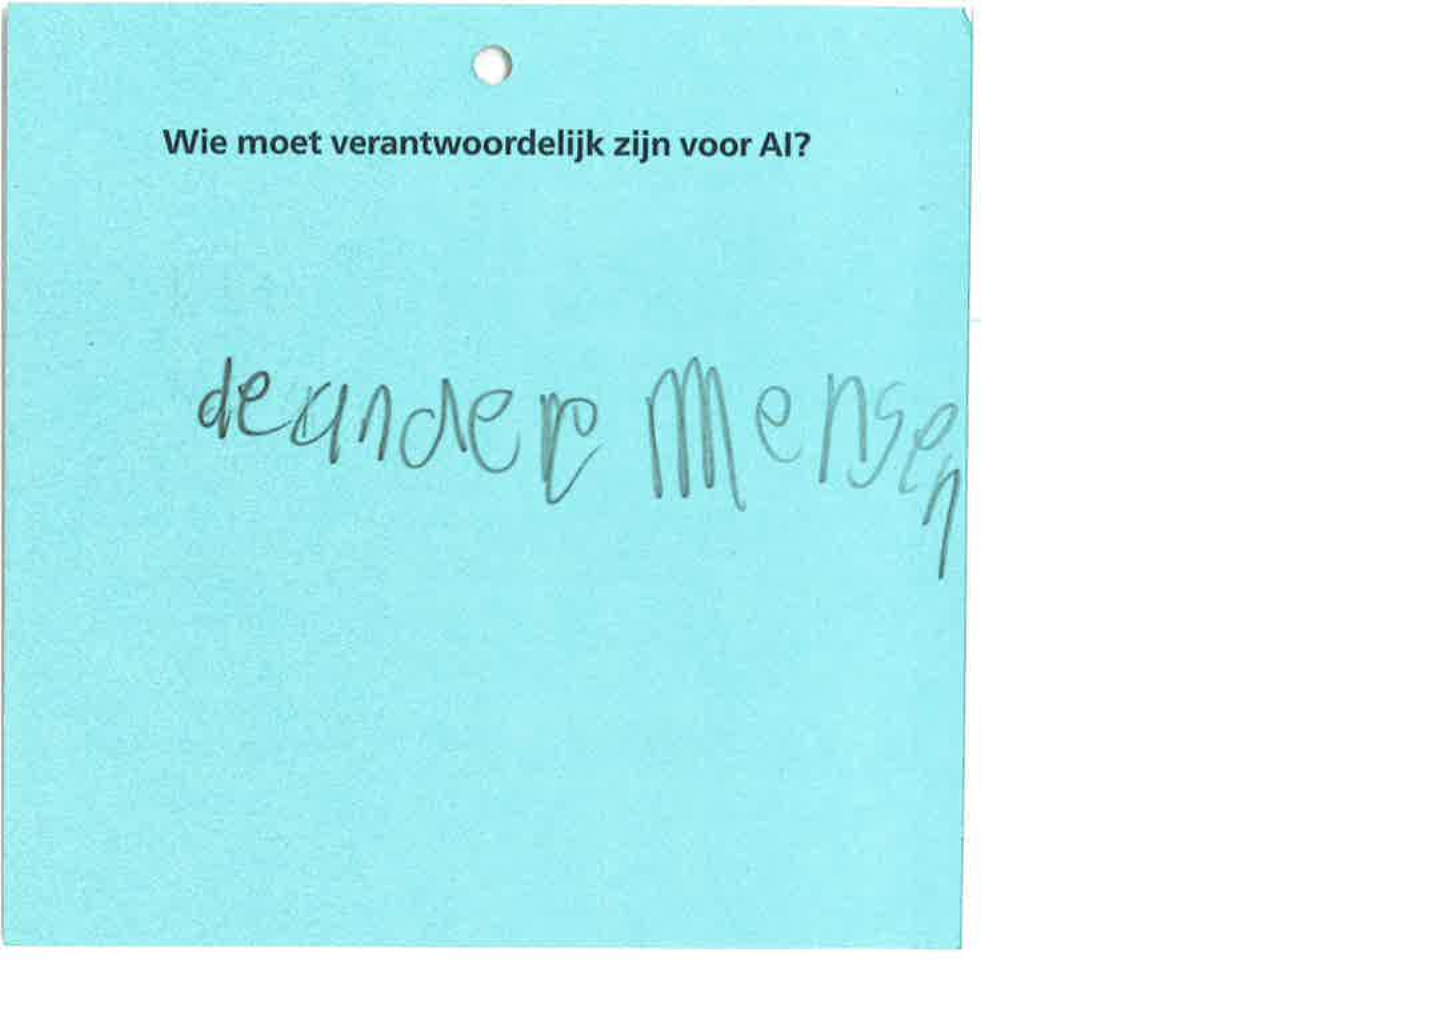 Wie moet verantwoordelijk zijn voor AI?
de ander mensen